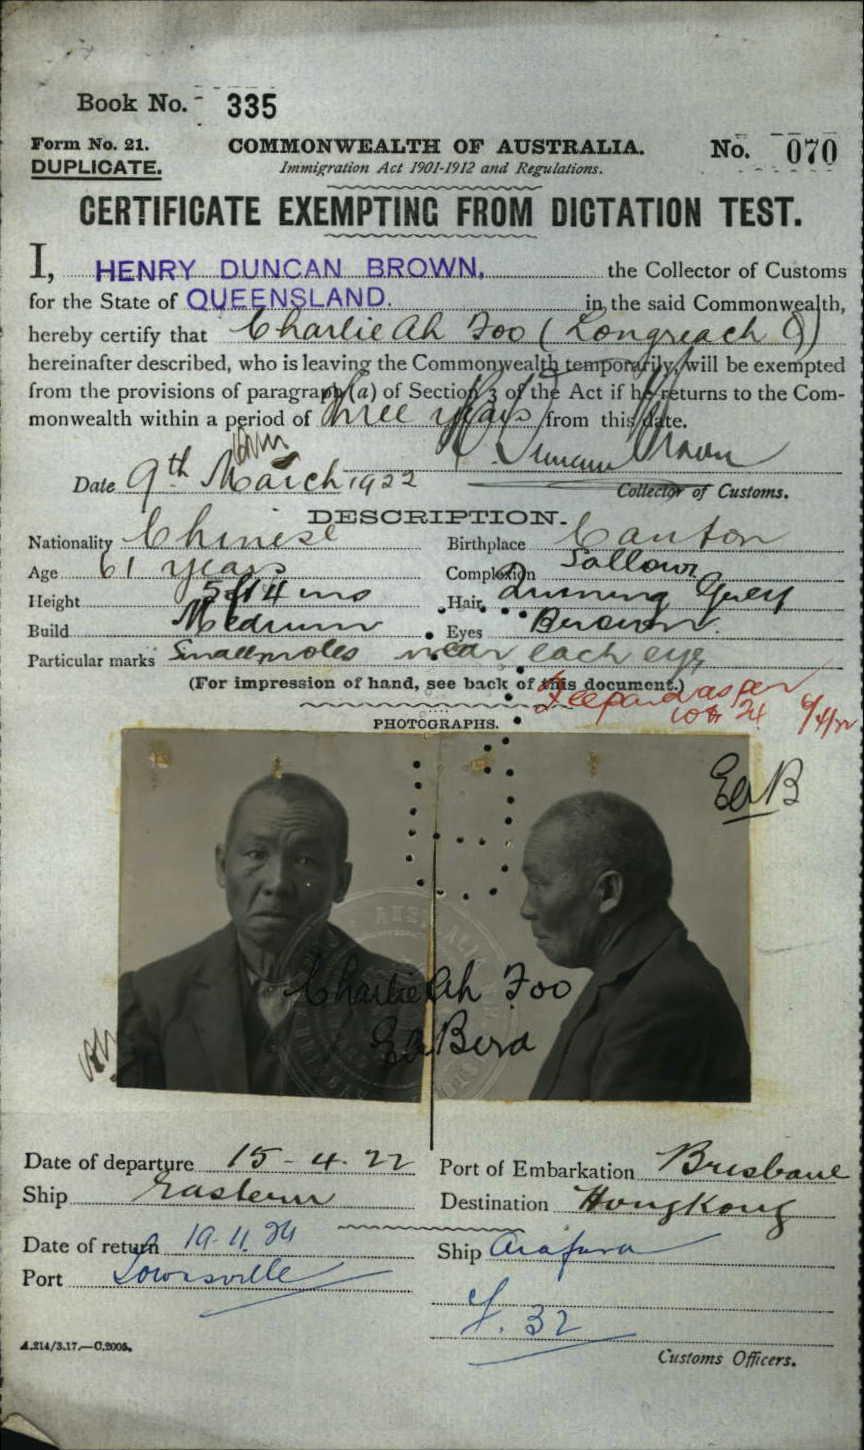 Book No. - 335
Form No. 21.
DUPLICATE.
COMMONWEALTH OF AUSTRALIA.
Immigration Act 1901-1912 and Regulations.
No. 070
CERTIFICATE EXEMPTING FROM DICTATION TEST.
I, HENRY DUNCAN BROWN, the Collector of Customs
for the State of QUEENSLAND. in the said Commonwealth,
hereby certify that Charlie Ah Foo (Longreach Q)
hereinafter described, who is leaving the Commonwealth temporarily, will be exempted
from the provisions of paragraph (a) of Section 3 of the Act if he returns to the Com-
monwealth within a period of three years from this date.
H. Duncan Brown
Date 9th March 1922
Collector of Customs.
DESCRIPTION.
Nationality Chinese Birthplace Canton
Age 61 years Complexion Sallow
Height 5ft 4 ins Hair Turning Grey
Build Medium Eyes Brown
Particular marks Small moles near each eye
(For impression of hand, see back of this document.)
Fee paid as per
24 6/4/22
PHOTOGRAPHS.
Charlie Ah Foo
Date of departure 15-4-22 Port of Embarkation Brisbane
Ship Eastern Destination HongKong
Date of return 19.11.24 Ship Arafura
Port Townsville
32
A.214/3.17.—C.2005.
Customs Officers.